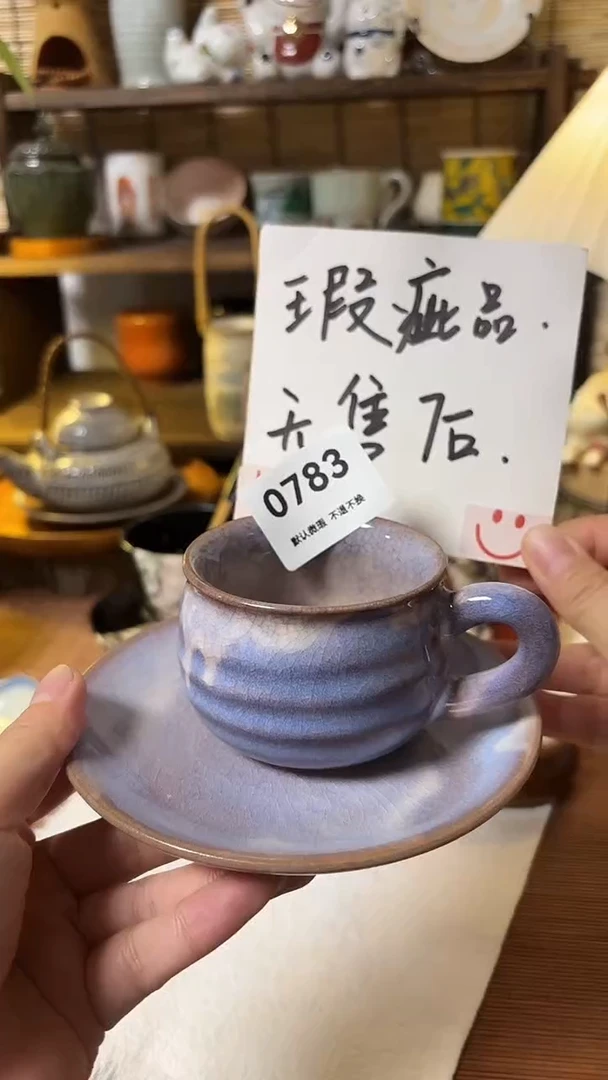 瑕疵品.
无售后.
0783
默认微瑕 不退不换